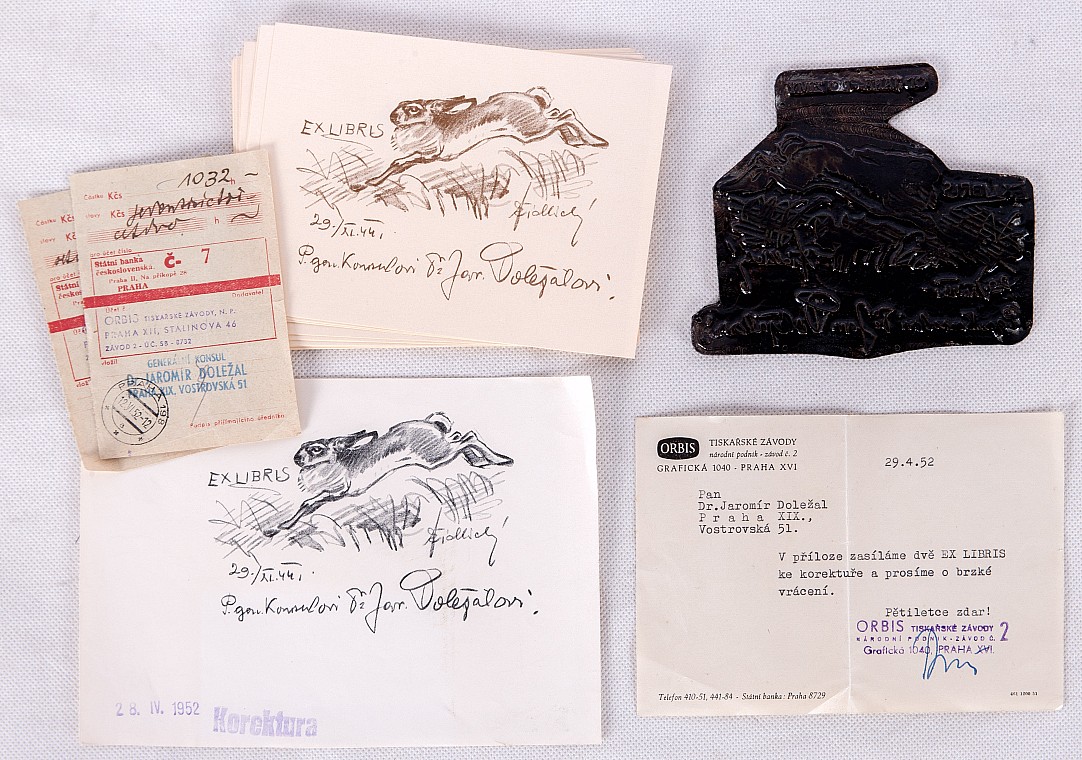 EX LIBRIS
29./XI.44.
P. gen. Konsulovi Dr Jar. Doležalovi.
Částku Kčs 1032 h
slovy Kčs
h
pro účet číslo
Státní banka
československá
Praha II, Na příkopě 28
PRAHA
č- 7
Dodavatel
Účet č.
ORBIS TISKAŘSKÉ ZÁVODY, N. P.
PRAHA XII, STALINOVA 46
ZÁVOD 2 - ÚČ. 58 - 8732
složil
GENERÁLNÍ KONSUL
Dr JAROMÍR DOLEŽAL
PRAHA XIX. VOSTROVSKÁ 51
PRAHA 198
Podpis přijímajícího úředníka
EX LIBRIS
29./XI.44.
P. gen. Konsulovi Dr Jar. Doležalovi.
28. IV. 1952 Korektura
ORBIS TISKAŘSKÉ ZÁVODY
národní podnik - závod č. 2
GRAFICKÁ 1040 - PRAHA XVI
29.4.52
Pan
Dr.Jaromír Doležal
P r a h a XIX.,
Vostrovská 51.
V příloze zasíláme dvě EX LIBRIS
ke korektuře a prosíme o brzké
vrácení.
Pětiletce zdar!
ORBIS TISKAŘSKÉ ZÁVODY 2
NÁRODNÍ PODNIK - ZÁVOD Č.
Grafická 1040, PRAHA XVI.
Telefon 410-51, 441-84 - Státní banka: Praha 8729